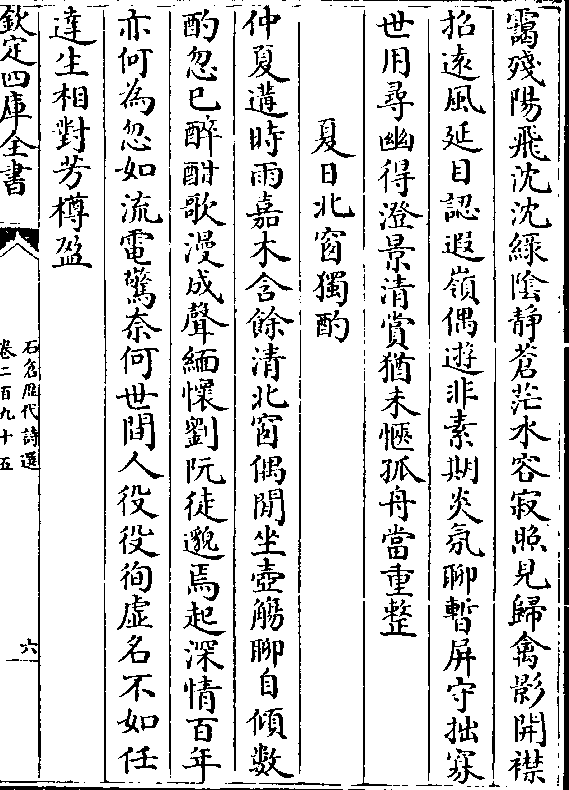 靄殘陽飛沈沈綠陰靜蒼茫水容寂照見歸禽影開襟
招遠風延目認遐嶺偶遊非素期炎氛聊暫屏守拙寡
世用尋幽得澄景清賞猶未愜孤舟當重整
夏日北窗獨酌
仲夏遘時雨嘉木含餘清北窗偶閒坐壺觴聊自傾數
酌忽已醉酣歌漫成聲緬懷劉阮徒邈焉起深情百年
亦何為忽如流電驚奈何世間人役役徇虛名不如任
達生相對芳樽盈
欽定四庫全書
石倉歷代詩選
卷二百九十五
六